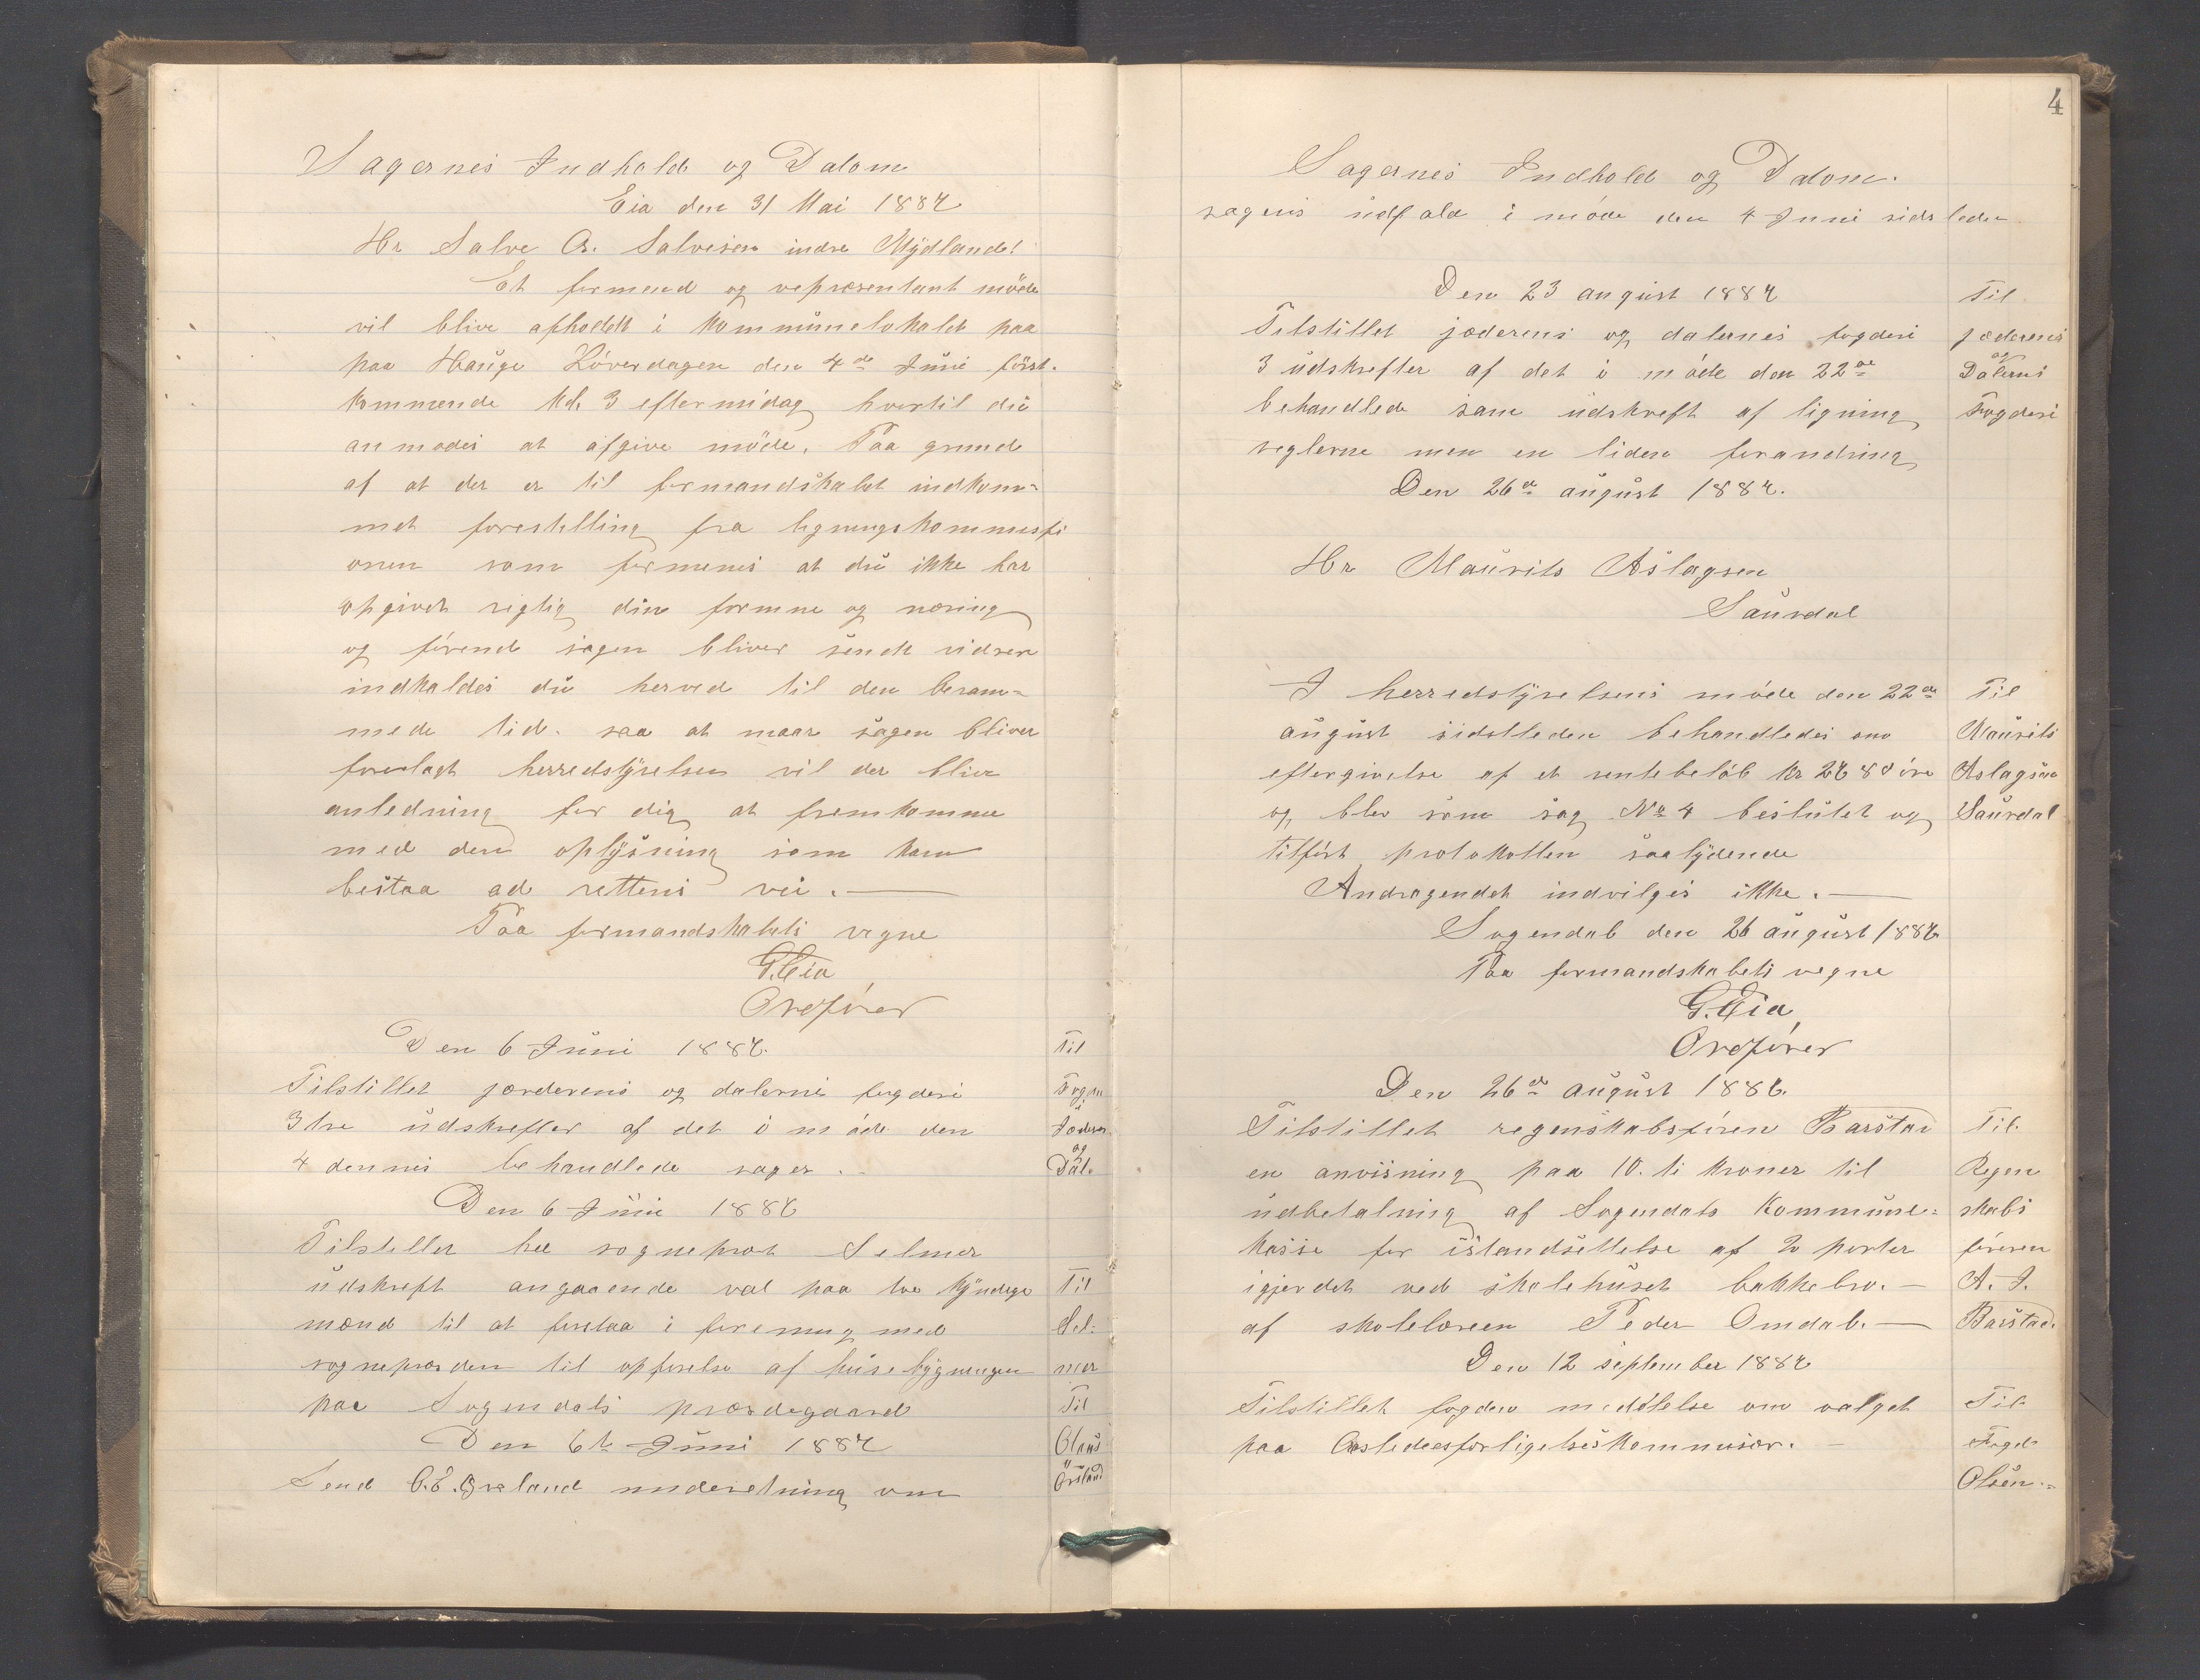 Sagernes Indhold og Datom
Eia den 31 Mai 1887
Hr Salve A. Salvesen indre Mydland!
Et formend og representant möde
vil blive afholdt i kommunelokalet paa
paa Hauge Löverdagen den 4de Juni först-
kommende Kl. 3 eftermidag hvortil du
anmodes at afgive möde. Paa grund
af at der er til formandskabet indkom-
met forestilling fra ligningskommissi
onen som formenes at du ikke har
opgivet rigtig din formue og næring
og förend sagen bliver sendt vidrere
indkaldes du herved til den beram-
mede tid. saa at naar sagen bliver
forelagt herredstyrelsen vil der blive
anledning for dig at fremkomme
med den oplysning som kan
bestaa ad rettens vei.
Paa formandskabets vegne
G. Eia
Ordförer
Den 6 Juni 1887.
Til
Tilstillet jæderens og dalernes fogderi
Fogden
3 tre udskrefter af det i möde den
i Jæderen
4 dennes behandlede sager.
og Dal.
Den 6 Juni 1887
Tilstillet hr sogneprest Selmer
udskreft angaaende val paa to kyndige
Til
mænd til at foretaa i forening med
Sel-
sognepresten til opförelse af huse bygningen
mer
paa Sogendals præstegaard
Til
Den 6te Juni 1887
Olaus
Send O. Ö. Örsland underetning om
Örsland
4
Sagernes Indhold og Datom.
sagens udfald i möde den 4 Juni sidsleden
Den 23 august 1887
Til
Tilstillet jæderens og dalernes fogderi
jæderens
3 udskrefter af det i möde den 22de
og Dalernes
behandlede sam udskreft af ligning
Fogderi
reglerne men en liden forandring
Den 26de august 1887.
Hr Maurits Aslagsen
Saurdal
I herredstyrelsens möde den 22de
Til
august sidstleden behandledes om
Maurits
eftergivelse af et rentebelöb kr 27 80 öre
Aslagsen
og blev som sag No 4 beslutet og
Saurdal
tilfört protokollen saalydende
Andragendet indvilges ikke.
Sogendal den 26 august 1887
Paa formandskabets vegne
G. Eia
Ordförer
Den 26de august 1887.
Tilstillet regenskabsfören Barstad
Til
en anvisning paa 10. ti kroner til
Regen
udbetaling af Sogendals kommune-
skabs
kasse for istandsettelse af 2 porter
föreren
igjerdet ved skolehuset bakkebro.
A. J.
af skolelæreren Peder Omdal.
Barstad.
Den 12 september 1887
Tilstillet fogden meddelelse om valget
Til
paa forligelseskommisær.
Foged
Olsen.